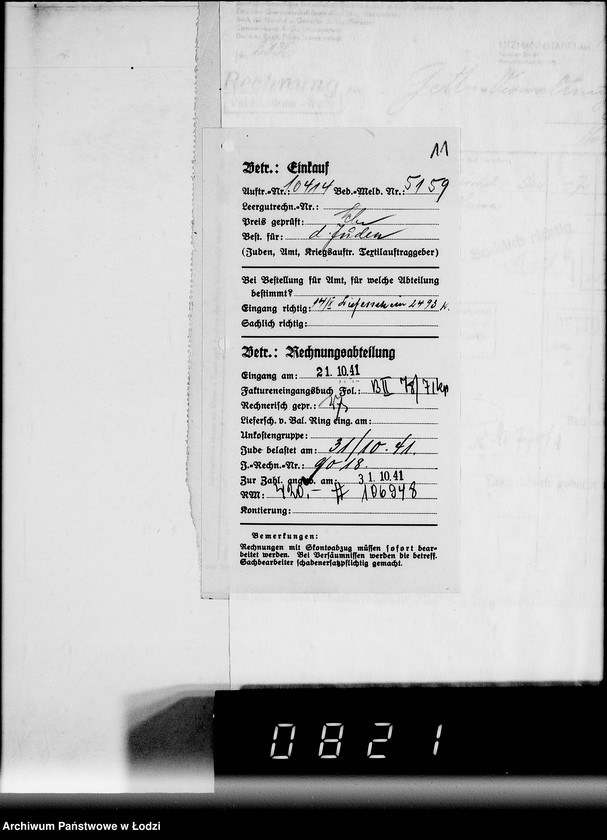 LITZMANNSTADT
Rechnung
11
Betr.: Einkauf
Auftr.-Nr.: 10414 Bed.-Meld. Nr.: 5159
Leergutrechn.-Nr.:
Preis geprüft:
Best. für: d. Juden
(Juden, Amt, Kriegsauftr. Textilauftraggeber)
Bei Bestellung für Amt, für welche Abteilung
bestimmt?
Eingang richtig: 14/X Lieferschein 2493
Sachlich richtig:
Betr.: Rechnungsabteilung
Eingang am: 21. 10. 41
Faktureneingangsbuch Fol.: B II 78/71
Rechnerisch gepr.:
Liefersch. v. Bal. Ring eing. am:
Unkostengruppe:
Jude belastet am: 31/10. 41.
J.-Rechn.-Nr.: 9018.
Zur Zahl. angew. am: 31. 10. 41
RM: 420,- # 106948
Kontierung:
Bemerkungen:
Rechnungen mit Skontoabzug müssen sofort bear-
beitet werden. Bei Versäumnissen werden die betreff.
Sachbearbeiter schadenersatzpflichtig gemacht.
0821
Archiwum Państwowe w Łodzi